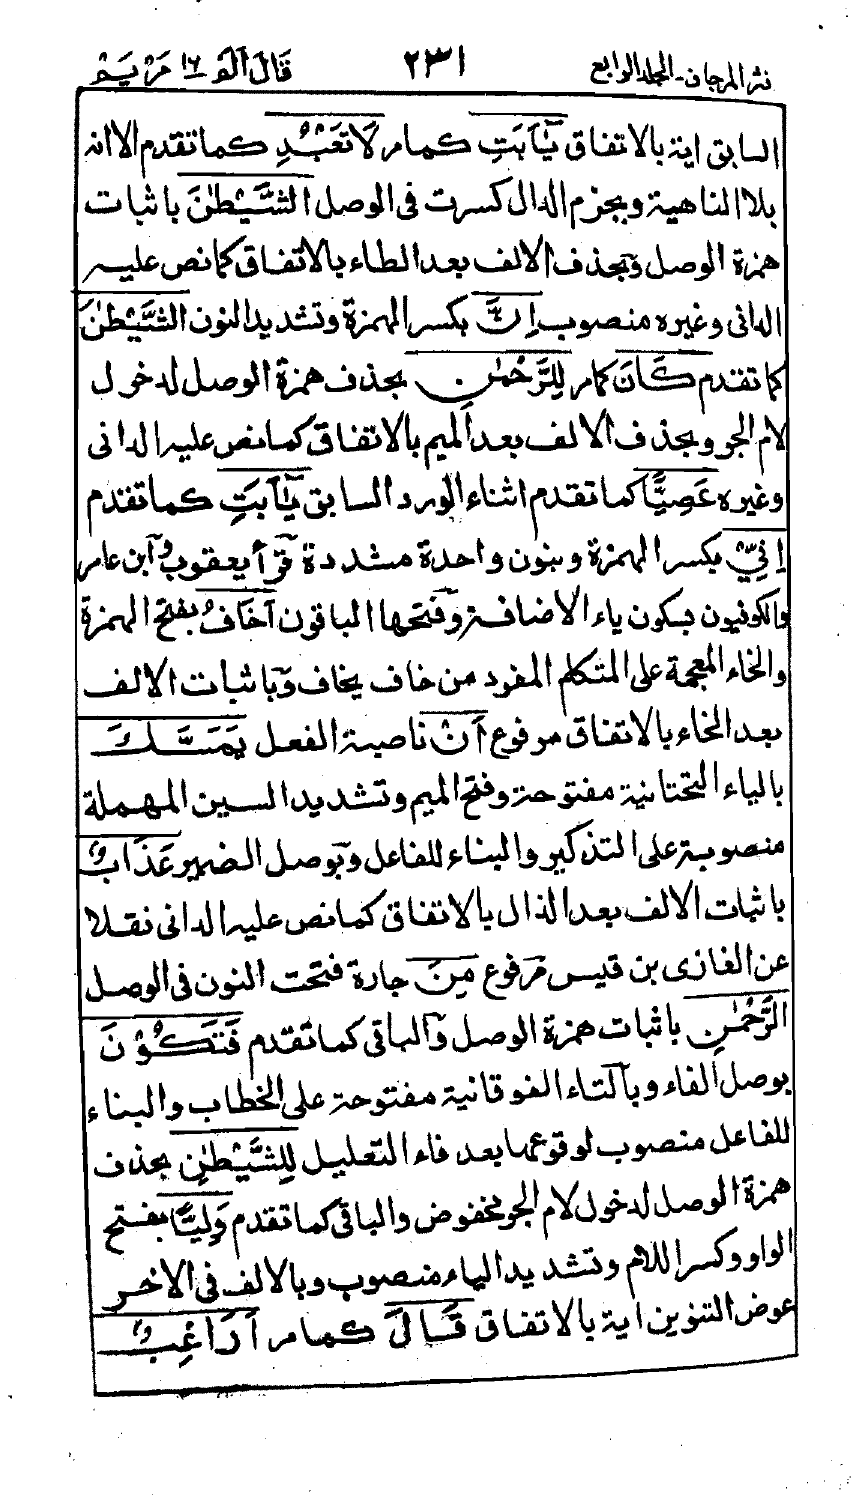 نثر المرجان - المجلد الرابع ٢٣١ قَالَ أَلَمْ ١٦ مَرْيَمْ
السابق اية بالاتفاق يٰٓاَبَتِ كما مر لَا تَعْبُدِ كما تقدم الا انه
بلا الناهية وبجزم الدال كسرت فى الوصل الشَّيْطٰنَ باثبات
همزة الوصل وبحذف الالف بعد الطاء بالاتفاق كما نص عليه
الدانى وغيره منصوب اِنَّ بكسر الهمزة وتشديد النون الشَّيْطٰنَ
كما تقدم كَانَ كما مر لِلرَّحْمٰنِ بحذف همزة الوصل لدخول
لام الجر وبحذف الالف بعد الميم بالاتفاق كما نص عليه الدانى
وغيره عَصِيًّا كما تقدم اثناء الورد السابق يٰٓاَبَتِ كما تقدم
اِنِّىْٓ بكسر الهمزة وبنون واحدة مشددة قرأ يعقوب وابن عامر
والكوفيون بسكون ياء الاضافة وفتحها الباقون اَخَافُ بفتح الهمزة
والخاء المعجمة على المتكلم المفرد من خاف يخاف وباثبات الالف
بعد الخاء بالاتفاق مرفوع اَنْ ناصبة الفعل يَمَسَّكَ
بالياء التحتانية مفتوحة وفتح الميم وتشديد السين المهملة
منصوبة على التذكير والبناء للفاعل وبوصل الضمير عَذَابٌ
باثبات الالف بعد الذال بالاتفاق كما نص عليه الدانى نقلا
عن الغازى بن قيس مرفوع مِنَ جارة فتحت النون فى الوصل
الرَّحْمٰنِ باثبات همزة الوصل والباقى كما تقدم فَتَكُوْنَ
بوصل الفاء وبالتاء الفوقانية مفتوحة على الخطاب والبناء
للفاعل منصوب لوقوعها بعد فاء التعليل لِلشَّيْطٰنِ بحذف
همزة الوصل لدخول لام الجر مخفوض والباقى كما تقدم وَلِيًّا بفتح
الواو وكسر اللام وتشديد الياء منصوب وبالالف فى الاخر
عوض التنوين اية بالاتفاق قَالَ كما مر اَرَاغِبٌ